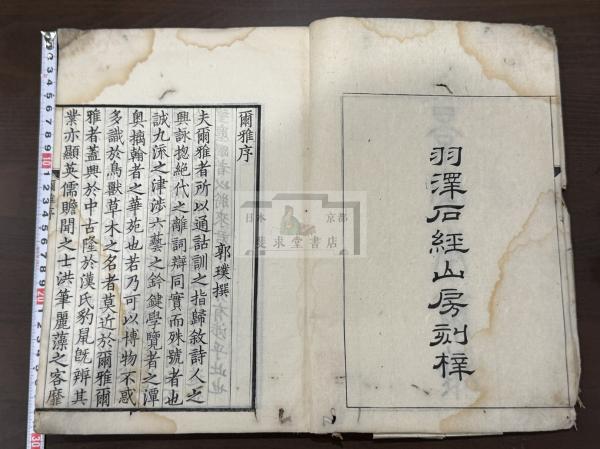 羽澤石經山房刻梓
爾雅序
郭璞撰
夫爾雅者所以通詁訓之指歸敘詩人之
興詠揔絶代之離詞辯同實而殊號者也
誠九流之津涉六藝之鈐鍵學覽者之潭
奧摛翰者之華苑也若乃可以博物不惑
多識於鳥獸草木之名者莫近於爾雅爾
雅者蓋興於中古隆於漢氏豹鼠既辨其
業亦顯英儒贍聞之士洪筆麗藻之客靡
日本
京都
書店